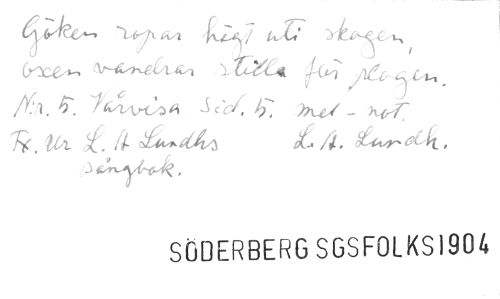 Göken ropar högt uti skogen,
oxen vandrar stilla för plogen.
N:r. 5. Vårvisa Sid. 5. mel-not.
Fx. Ur L. A Lundhs L. A. Lundh.
sångbok.
SÖDERBERG SGSFOLKS1904